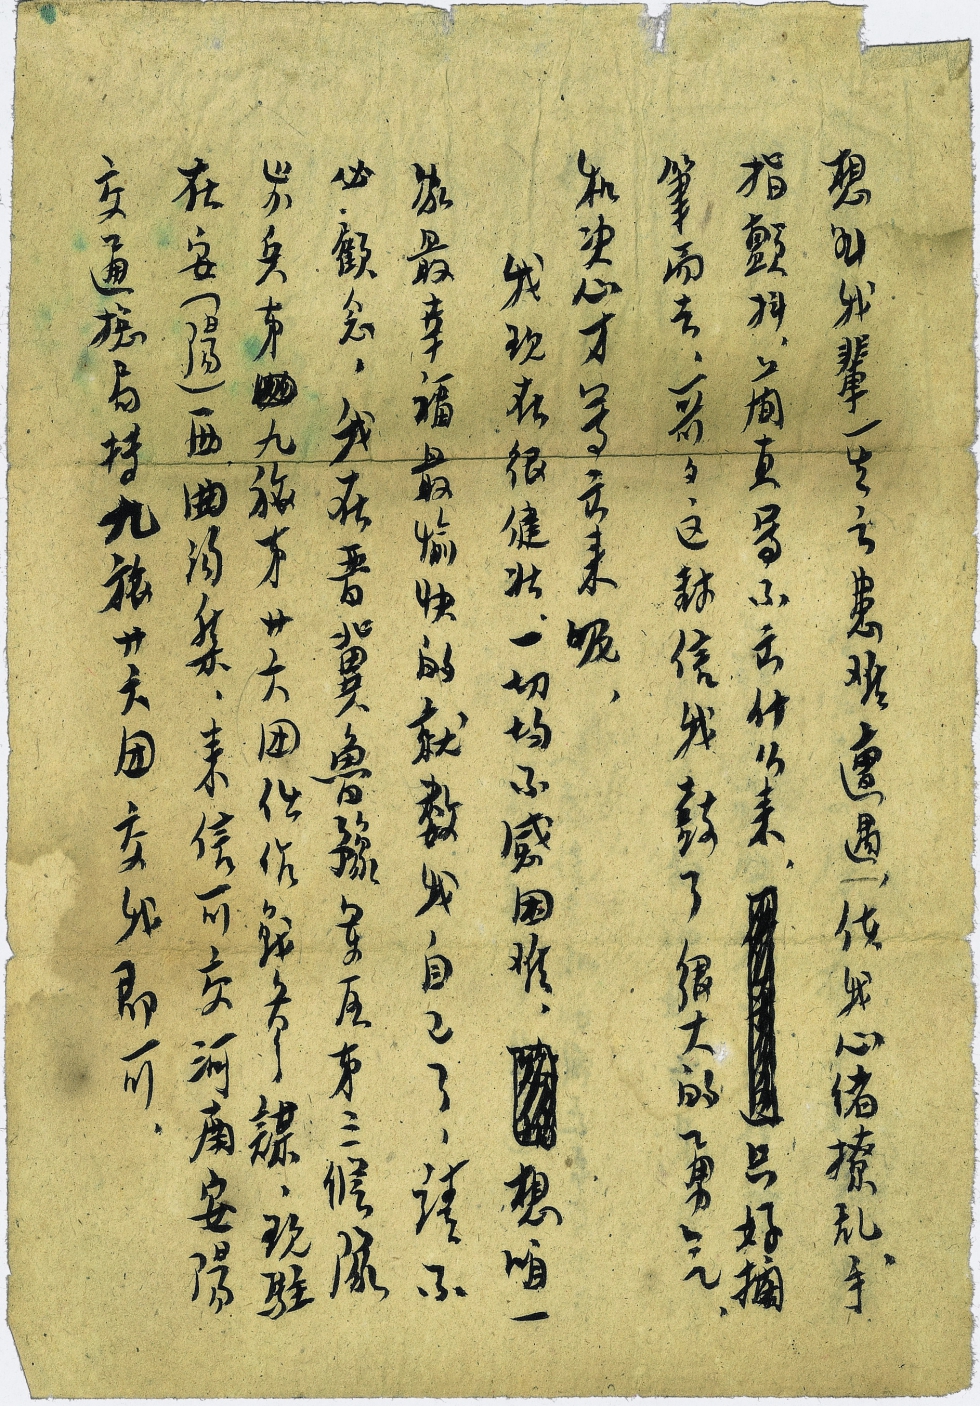 想到我辈一生之患难遭遇,使我心绪撩乱,手
指颤抖,简直写不出什么来,只好搁
笔而去,前夕这封信我鼓了很大的勇气,
和决心才写出来呢,
我现在很健壮,一切均不感困难,想咱一
家最幸福最愉快的就数我自己了,请不
必顾念,我在晋冀鲁豫军区第三纵队
步兵第九旅第廿六团任作战参谋,现驻
在安(陽)西曲沟集,来信可交河南安陽
交通总局持九旅廿六团交我即可,